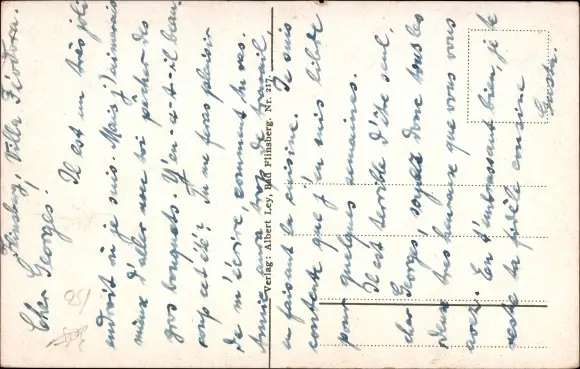 Flinsberg, Villa Flodora.
Cher Georges!
Il est un très joli
endroit où je suis. Mais j'aimais
mieux d'aller avec toi pêcher des
gros bouquets. Y en-a-t-il beau-
coup cet été? Tu me feras plaisir
de m'écrire, comment tu vas.
Annie aura trop de travail,
en faisant la cuisine. Je suis
contente que j'en suis libre
pour quelques semaines.
Il est terrible d'être seul,
cher Georges, soyez donc tous les
deux très heureux que vous vous
avez. En t'embrassant bien, je te
reste ta fidèle cousine
Verlag: Albert Ley, Bad Flinsberg. Nr. 217.
150